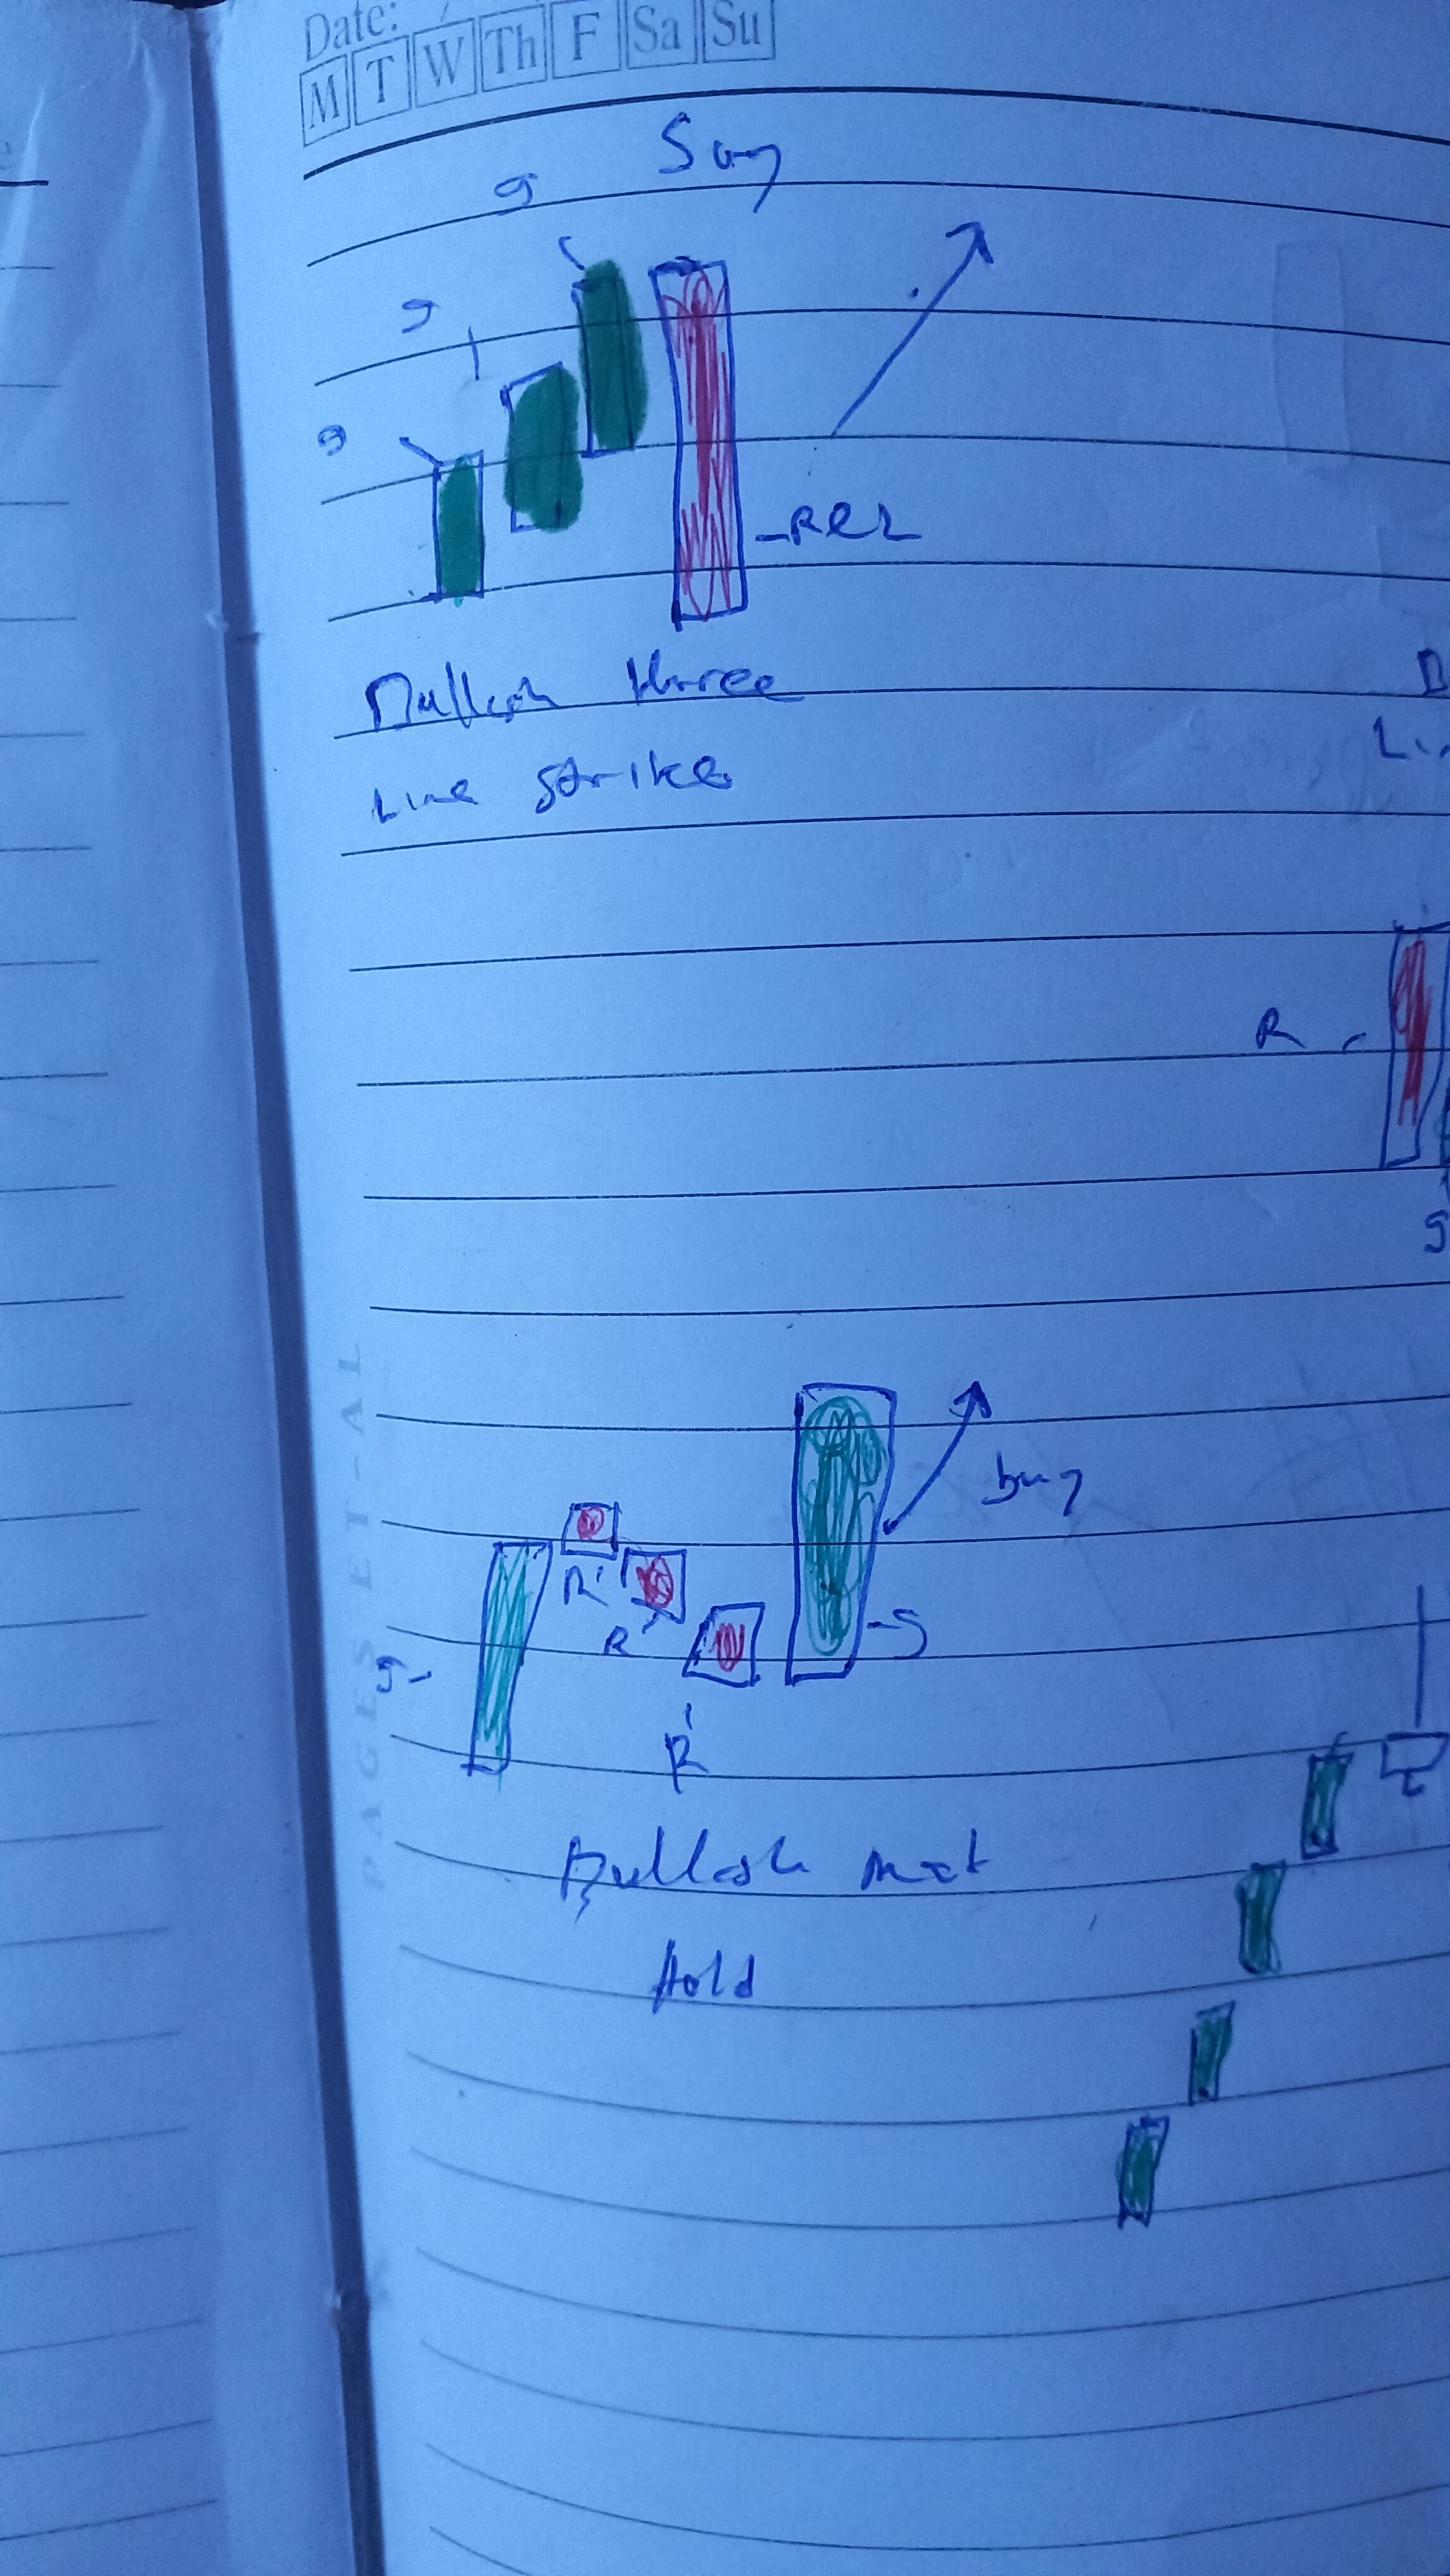 Date:
M T W Th F Sa Su
g
g
g
Red
Bullish three
Line strike
R
g
buy
R
R
g
g
R
Bullish mat
Hold
PAGES ET-AL